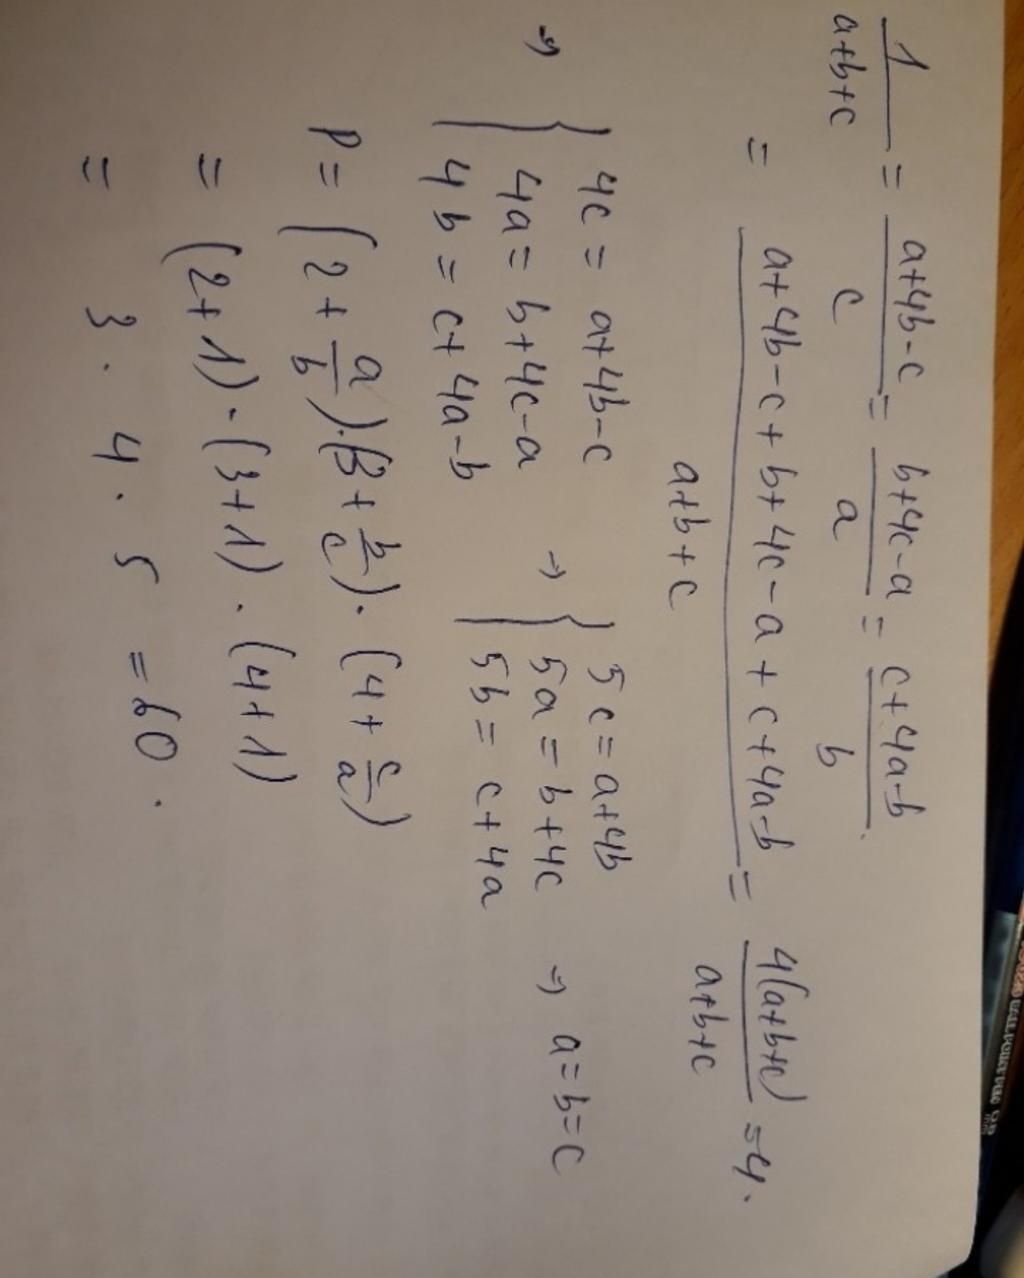 1/(a+b+c) = (a+4b-c)/c = (b+4c-a)/a = (c+4a-b)/b .
= (a+4b-c+b+4c-a+c+4a-b)/(a+b+c) = 4(a+b+c)/(a+b+c) = 4.
⇒ { 4c = a+4b-c
4a = b+4c-a
4b = c+4a-b
→ { 5c = a+4b
5a = b+4c
5b = c+4a
⇒ a=b=c
P = (2 + a/b).(3 + b/c). (4 + c/a)
= (2+1).(3+1).(4+1)
= 3. 4. 5 = 60.